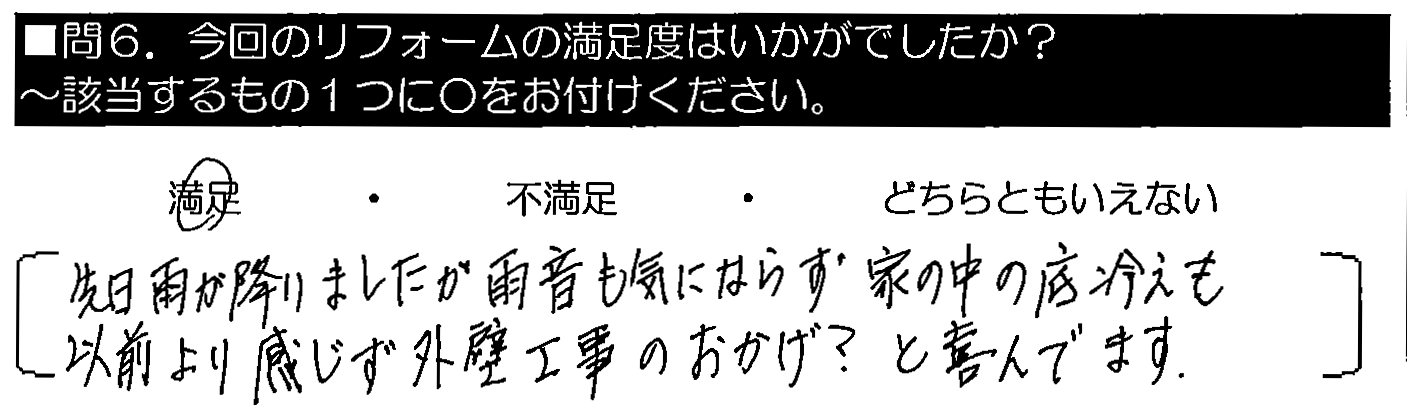 ■問6．今回のリフォームの満足度はいかがでしたか？
～該当するもの１つに〇をお付けください。
満足 ・ 不満足 ・ どちらともいえない
先日雨が降りましたが雨音も気にならず 家の中の底冷えも
以前より感じず外壁工事のおかげ？と喜んでます.